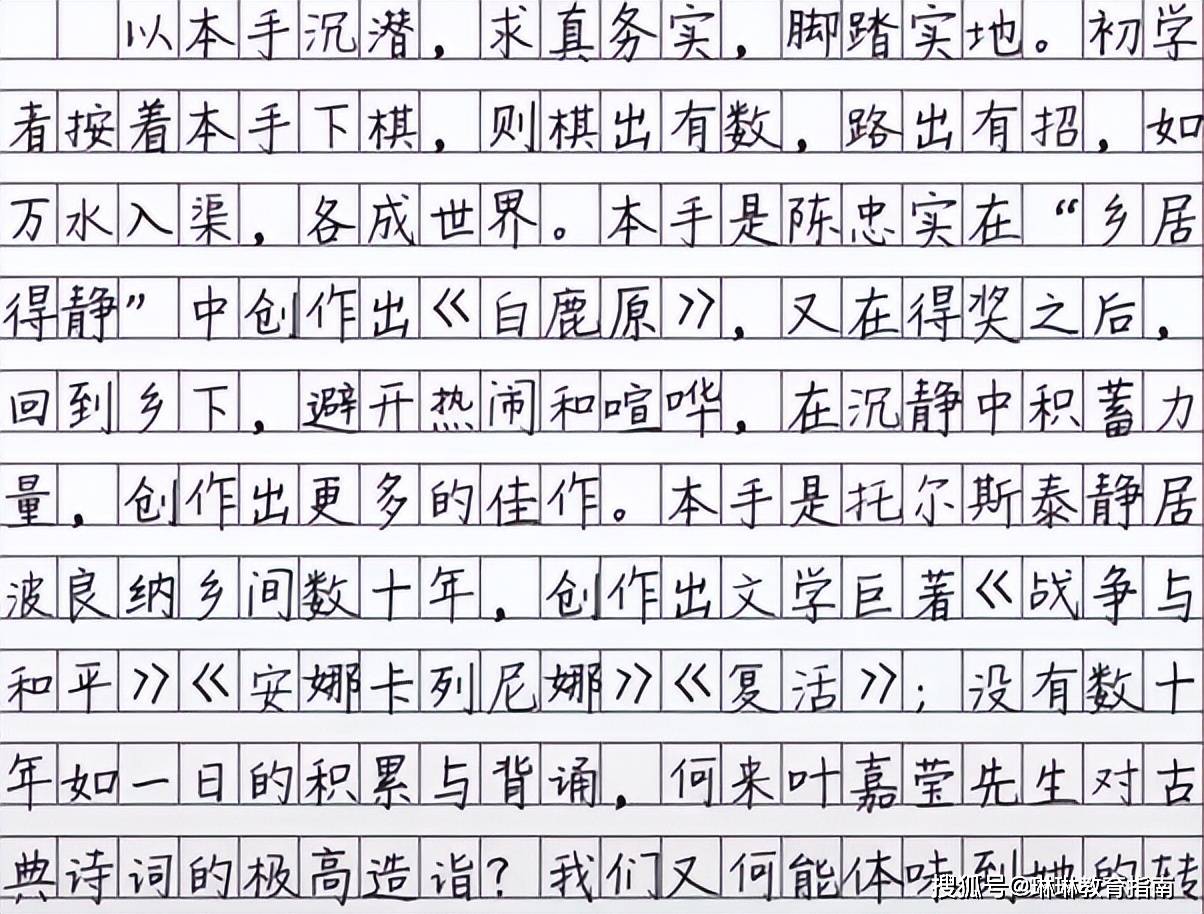 以本手沉潜，求真务实，脚踏实地。初学
者按着本手下棋，则棋出有数，路出有招，如
万水入渠，各成世界。本手是陈忠实在“乡居
得静”中创作出《白鹿原》，又在得奖之后，
回到乡下，避开热闹和喧哗，在沉静中积蓄力
量，创作出更多的佳作。本手是托尔斯泰静居
波良纳乡间数十年，创作出文学巨著《战争与
和平》《安娜卡列尼娜》《复活》；没有数十
年如一日的积累与背诵，何来叶嘉莹先生对古
典诗词的极高造诣？我们又何能体味到她的转
搜狐号@琳琳教育指南